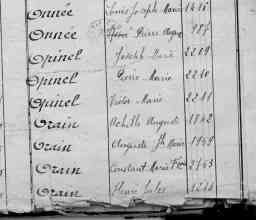 Onnée Louis Joseph Marie 1416
Onnée Pierre 987
Opinel Joseph Marie 2209
Opinel Pierre Marie 2210
Opinel Victor Marie 2211
Orain Achille Auguste 1842
Orain Auguste Jh Marie 1949
Orain Constant Marie 2763
Orain Jules